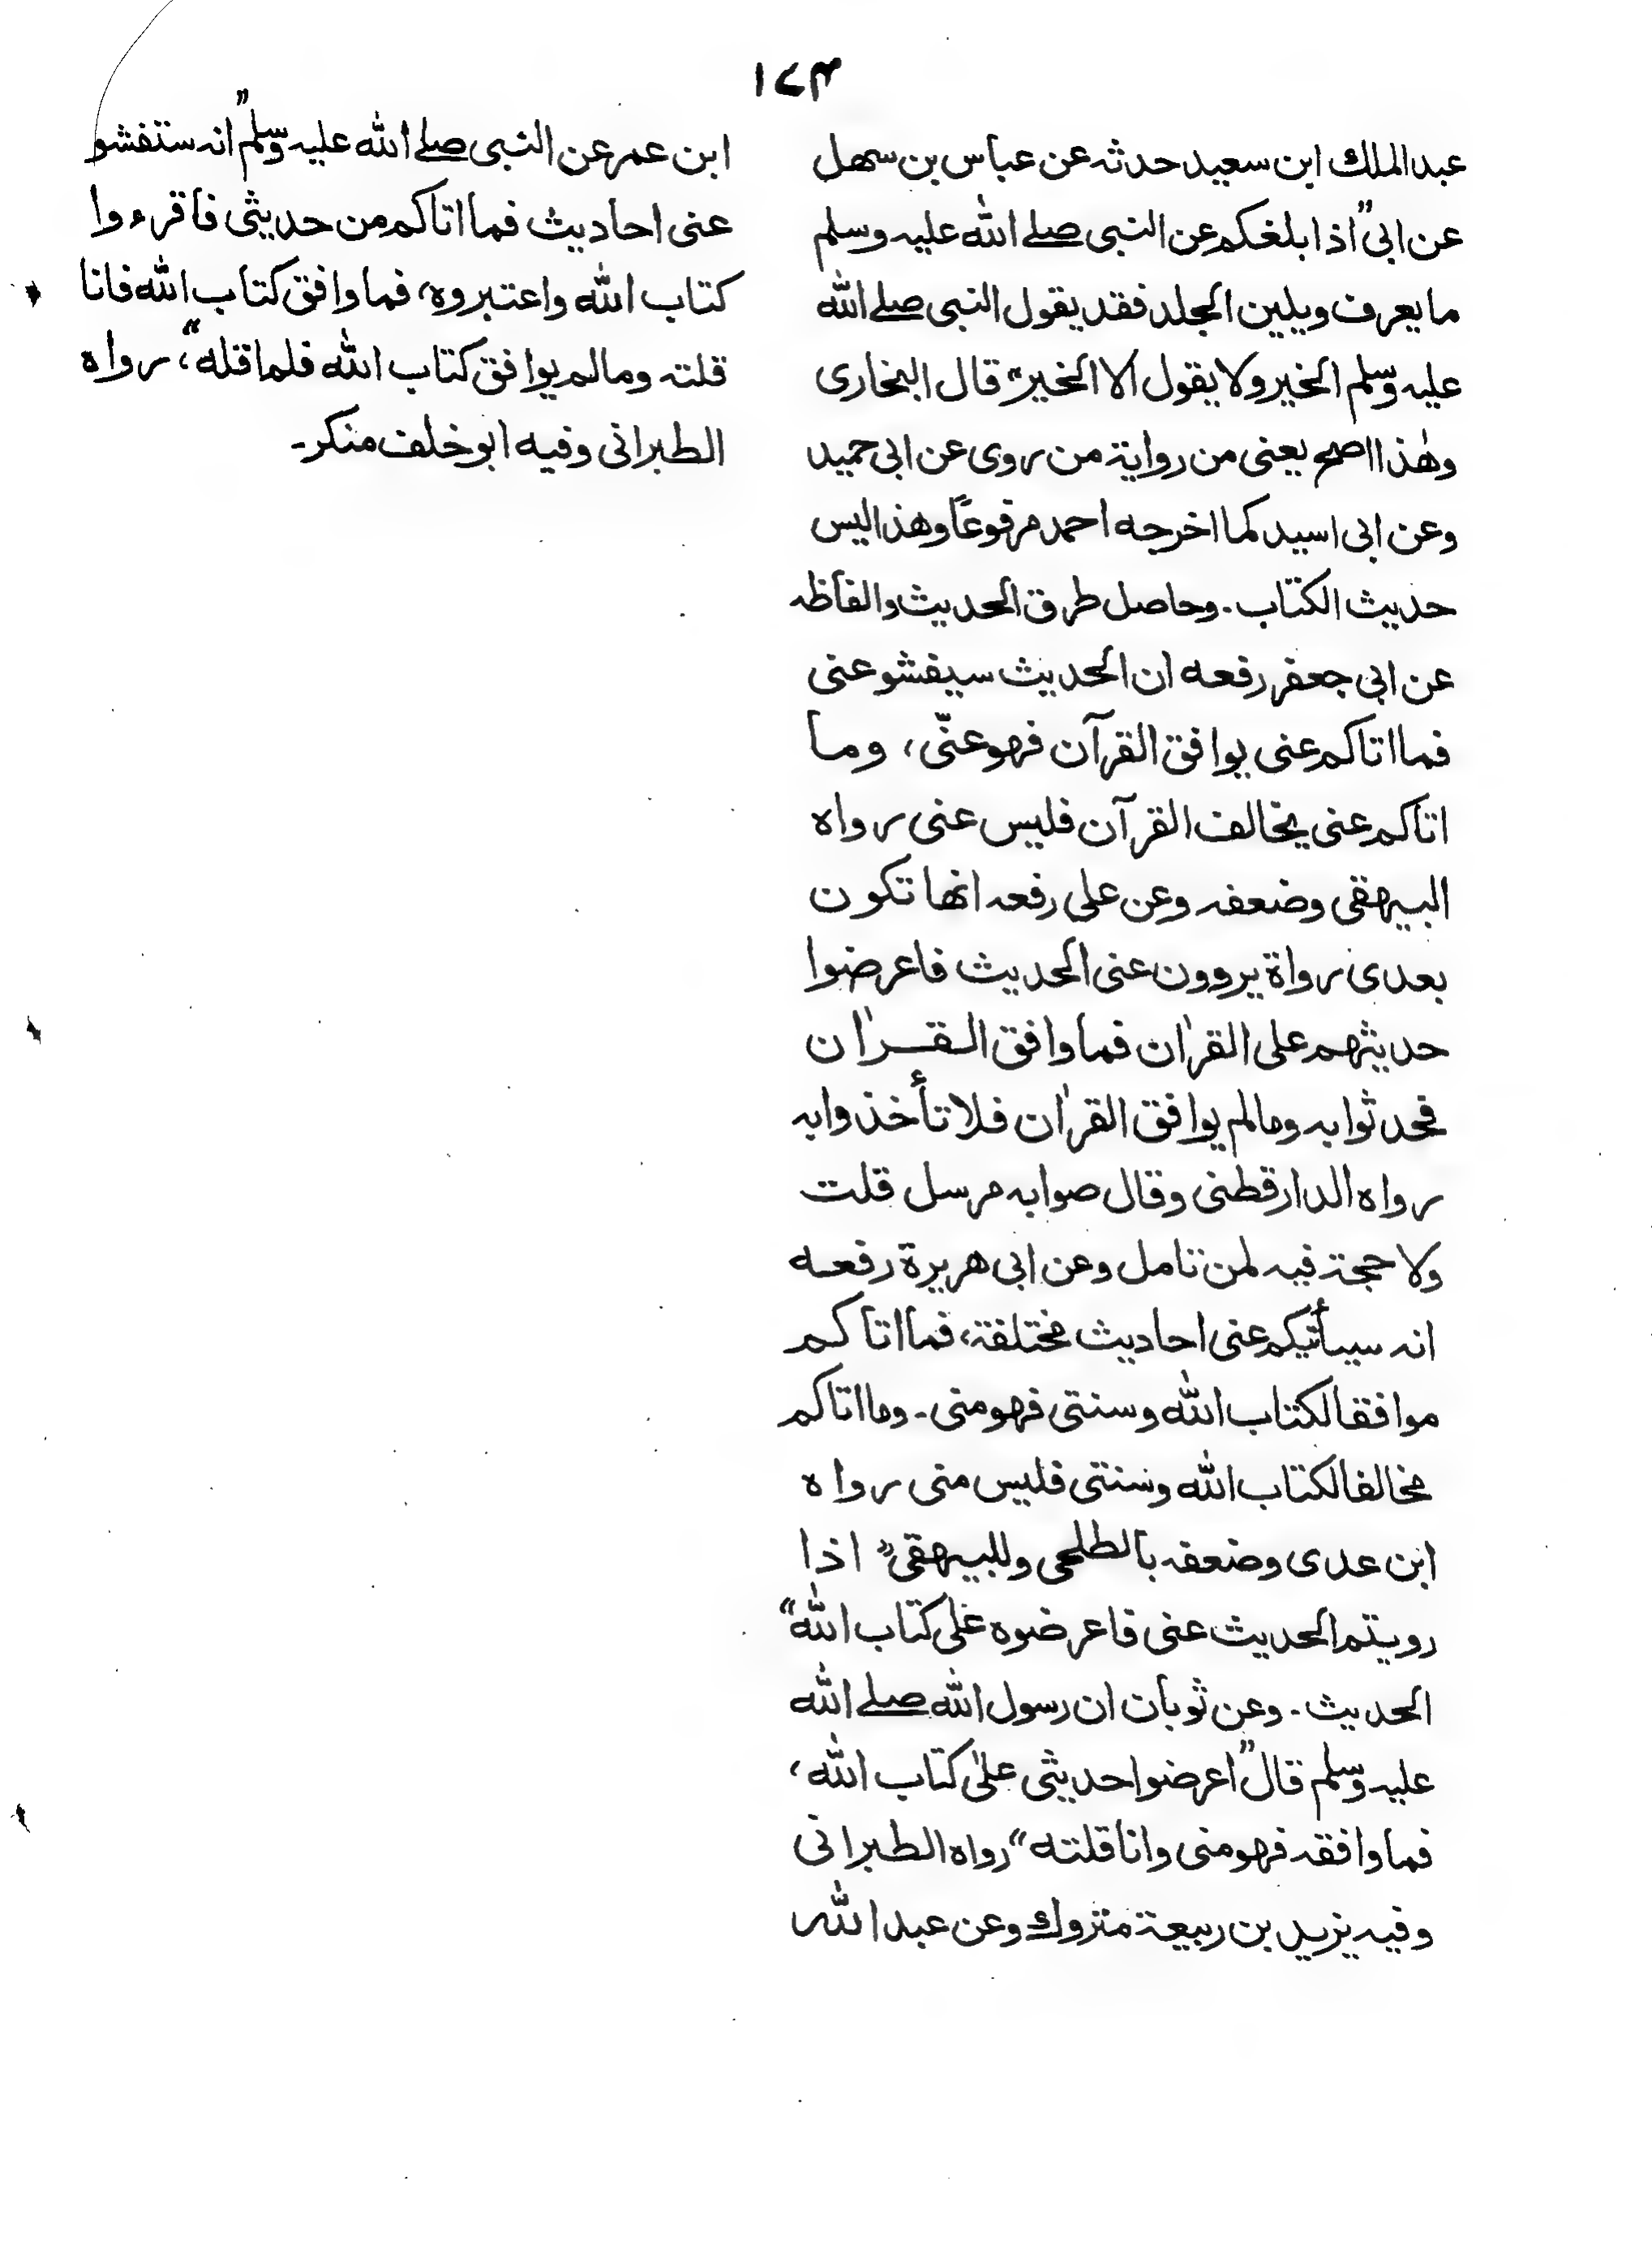 ١٧٣
عبدالملك ابن سعيد حدثه عن عباس بن سهل
عن ابي "اذا بلغكم عن النبي صلے الله عليه وسلم
ما يعرف ويلين الجلد فقد يقول النبي صلے الله
عليه وسلم الخير ولا يقول الا الخير" قال البخاری
وهٰذا اصح يعنی من رواية من روی عن ابی حميد
وعن ابی اسيد كما اخرجه احمد مرفوعًا وهذا ليس
حديث الكتاب۔ وحاصل طرق الحديث والفاظه
عن ابی جعفر رفعه ان الحديث سيفشو عنی
فما اتاكم عنی يوافق القرآن فهو عنّی، وما
اتاكم عنی يخالف القرآن فليس عنی رواه
البيهقی وضعفه وعن علی رفعه انها تكون
بعدی رواة يروون عنی الحديث فاعرضوا
حديثهم علی القرٰان فما وافق القرٰان
فحدثوا به ومالم يوافق القرٰان فلا تأخذوا به
رواه الدارقطنی وقال صوابه مرسل قلت
ولا حجة فيه لمن تامل وعن ابی هريرة رفعه
انه سيأتيكم عنی احاديث مختلفة، فما اتاكم
موافقا لكتاب الله وسنتی فهو منی۔ وما اتاكم
مخالفا لكتاب الله وسنتی فليس منی رواه
ابن عدی وضعفه بالطلحی وللبيهقی" اذا
رويتم الحديث عنی فاعرضوه علی كتاب الله"
الحديث۔ وعن ثوبان ان رسول الله صلے الله
عليه وسلم قال "اعرضوا حديثی علیٰ كتاب الله،
فما وافقه فهو منی وانا قلته" رواه الطبرانی
وفيه يزيد بن ربيعة متروك وعن عبدالله
ابن عمر عن النبی صلے الله عليه وسلم "انه ستفشو
عنی احاديث فما اتاكم من حديثی فاقرءوا
كتاب الله واعتبروه، فما وافق كتاب الله فانا
قلته ومالم يوافق كتاب الله فلم اقله"، رواه
الطبرانی وفيه ابو خلف منكر۔